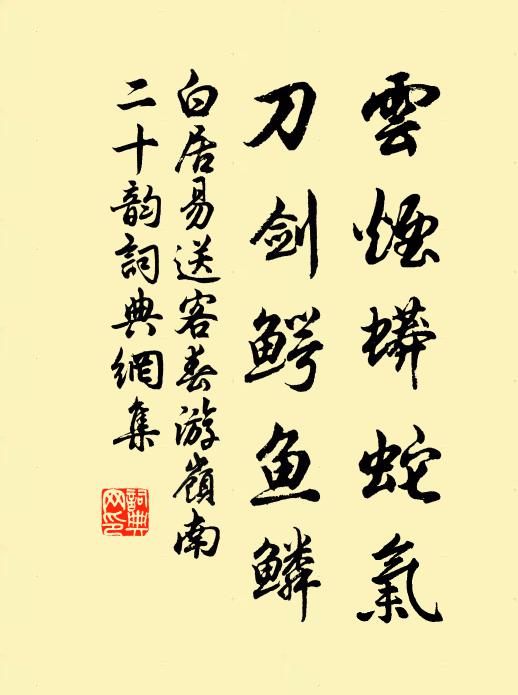 雲煙蟒蛇氣
刀劍鳄鱼鱗
白居易送客春游嶺南
二十韵詞典網集
詞典网印